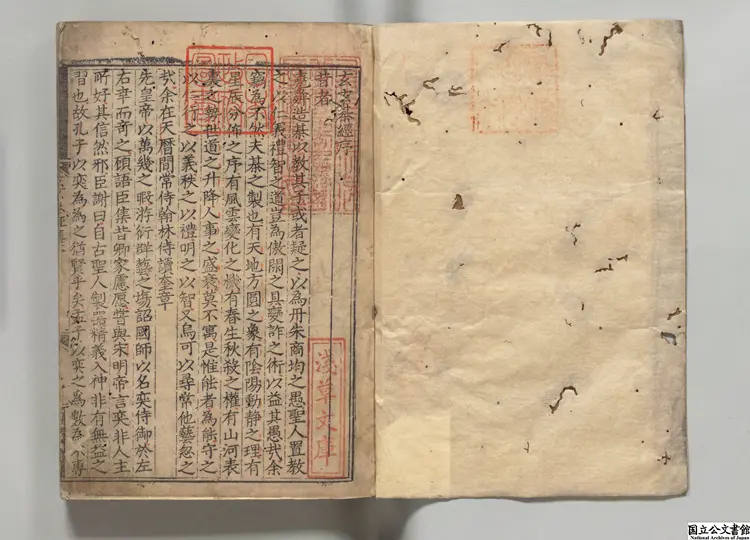 玄玄棊經序
昔者
堯舜造棊以教其子或者疑之以為丹朱商均之愚聖人宜教
之以仁義禮智之道豈為傲閑之具變詐之術以益其愚哉余
竊為不然夫棊之製也有天地方圓之象有陰陽動靜之理有
星辰分佈之序有風雲變化之機有春生秋殺之權有山河表
裏之勢世道之升降人事之盛衰莫不寓是惟能者為能守之
以仁行之以義秩之以禮明之以智又烏可以尋常他藝忽之
哉余在天曆間常侍翰林侍讀奎章
先皇帝以萬幾之暇游衍群藝之場詔國師以名奕侍御於左
右幸而奇之碩語臣集昔卿家慮愿嘗與宋明帝言奕非人主
所好其信然邪臣謝曰自古聖人製器精義入神非有無益之
習也故孔子以奕為為之猶賢乎矣孟子以奕之為數為不專
淺草文庫
国立公文書館
National Archives of Japan